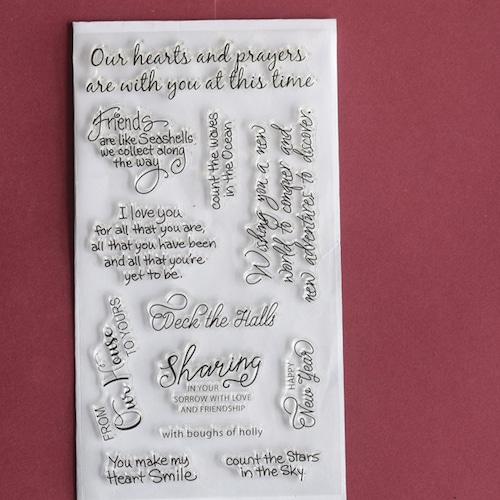 Our hearts and prayers
are with you at this time
Friends
are like Seashells
we collect along
the way
count the waves
in the Ocean
Wishing you a new
world to conquer and
new adventures to discover.
I love you
for all that you are,
all that you have been
and all that you're
yet to be.
Deck the Halls
FROM
Our House
TO YOURS
Sharing
IN YOUR
SORROW WITH LOVE
AND FRIENDSHIP
HAPPY
New Year
with boughs of holly
You make my
Heart Smile
count the Stars
in the Sky